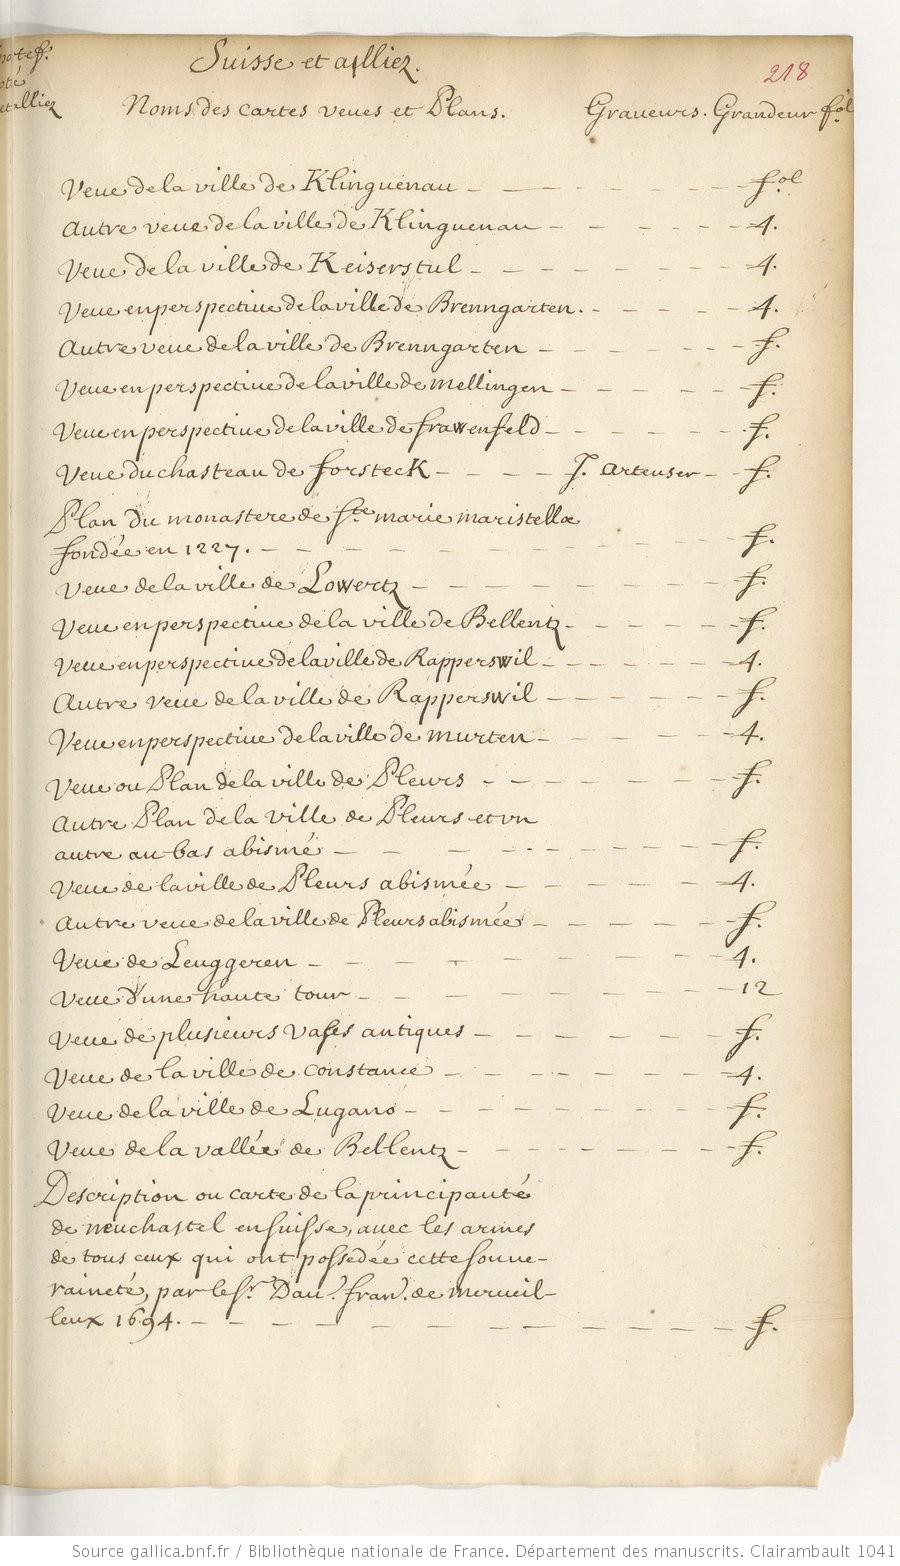 Suisse et alliez.
218
Noms des cartes veues et Plans. Graveurs. Grandeur fol
Veue de la ville de Klinguenau - - - - - - - fol
Autre veue de la ville de Klinguenau - - - - - - 4.
Veue de la ville de Keiserstul - - - - - - - 4.
Veue en perspective de la ville de Brenngarten. - - - - - 4.
Autre veue de la ville de Brenngarten - - - - - f.
Veue en perspective de la ville de Mellingen - - - - - f.
Veue en perspective de la ville de frawenfeld - - - - - f.
Veue du chasteau de forsteck - - - - J. Arteuser - f.
Plan du monastere de Ste marie maristellæ
fondée en 1227. - - - - - - - - - f.
Veue de la ville de Lowertz - - - - - - - - f.
Veue en perspective de la ville de Bellentz - - - - - f.
Veue en perspective de la ville de Rapperswil - - - - - - 4.
Autre veue de la ville de Rapperswil - - - - - - f.
Veue en perspective de la ville de murten - - - - - - 4.
Veue ou Plan de la ville de Pleurs - - - - - - - f.
Autre Plan de la ville de Pleurs et vn
autre au bas abismé - - - - - - - - f.
Veue de la ville de Pleurs abismée - - - - - - 4.
Autre veue de la ville de Pleurs abismée - - - - - f.
Veue de Leuggeren - - - - - - - - 4.
Veue d'une haute tour - - - - - - - - 12
Veue de plusieurs vases antiques - - - - - - - f.
Veue de la ville de constance - - - - - - - 4.
Veue de la ville de Lugano - - - - - - - - f.
Veue de la vallée de Bellentz - - - - - - - - f.
Description ou carte de la principauté
de neuchastel en suisse, avec les armes
de tous ceux qui ont possedée cette souve-
raineté, par le Sr. Dav. fran. de merveil-
leux 1694. - - - - - - - - - - f.
Source gallica.bnf.fr / Bibliothèque nationale de France. Département des manuscrits. Clairambault 1041